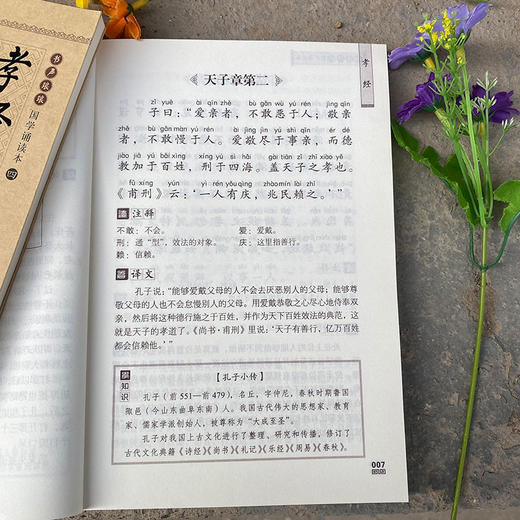 孝经
书声琅琅
国学诵读本
四
孝经
天子章第二
zǐ yuē ài qīn zhě bù gǎn wù yú rén jìng qīn
子曰：“爱亲者，不敢恶于人；敬亲
zhě bù gǎn màn yú rén ài jìng jìn yú shì qīn ér dé
者，不敢慢于人。爱敬尽于事亲，而德
jiào jiā yú bǎi xìng xíng yú sì hǎi gài tiān zǐ zhī xiào yě
教加于百姓，刑于四海。盖天子之孝也。
fǔ xíng yún yì rén yǒu qìng zhào mín lài zhī
《甫刑》云：‘一人有庆，兆民赖之。’”
注释
不敢：不会。 爱：爱戴。
刑：通“型”，效法的对象。 庆：这里指善行。
赖：信赖。
译文
孔子说：“能够爱戴父母的人不会去厌恶别人的父母；能够尊
敬父母的人也不会怠慢别人的父母。用爱戴恭敬之心尽心地侍奉双
亲，然后将这种德行施之于百姓，并作为天下百姓效法的典范，这
就是天子的孝道了。《尚书·甫刑》里说：‘天子有善行，亿万百姓
都会信赖他。’”
知识
【孔子小传】
孔子（前551—前479），名丘，字仲尼，春秋时期鲁国
陬邑（今山东曲阜东南）人。我国古代伟大的思想家、教育
家、儒家学派创始人，被尊称为“大成至圣”。
孔子对我国上古文化进行了整理、研究和传播，修订了
古代文化典籍《诗经》《尚书》《礼记》《乐经》《周易》《春秋》。
007